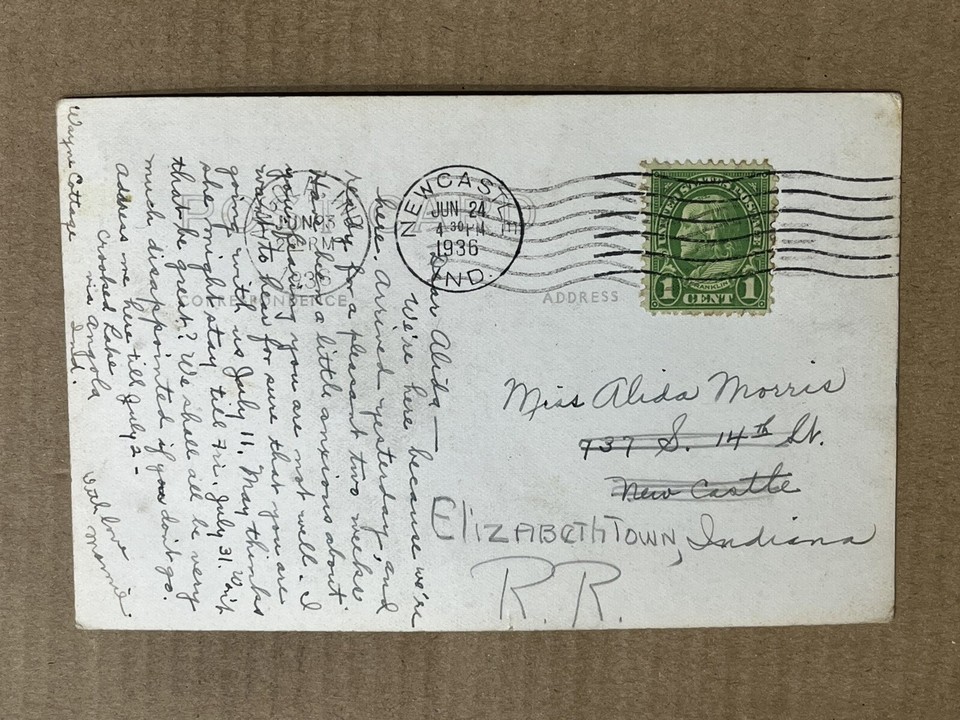 POST CARD
CORRESPONDENCE
ADDRESS
NEWCASTLE
JUN 24
4 30 PM
1936
IND.
UNITED STATES POSTAGE
FRANKLIN
1 CENT 1
Miss Alida Morris
737 S. 14th St.
New Castle
Elizabethtown, Indiana
R.R.
Dear Alida —
We're here because we're
here. Arrived yesterday and
ready for a pleasant two weeks.
Have been a little anxious about
you fearing you are not well. I
want to hear for sure that you are
going with us July 11. May thinks
she might stay till Fri. July 31. Won't
that be great? We shall all be very
much disappointed if you don't go.
Address me here till July 2 —
Wayne Cottage
Crooked Lake
via Angola
Ind.
With love